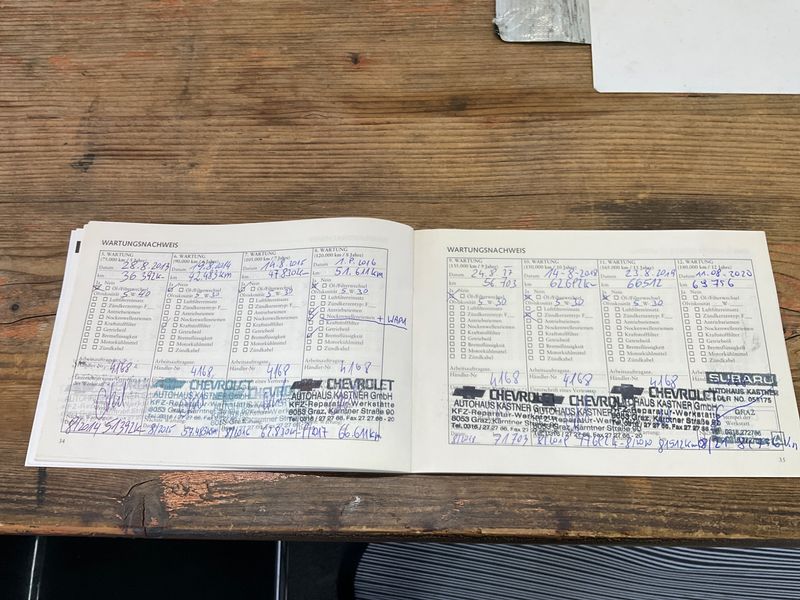 WARTUNGSNACHWEIS
5. WARTUNG
(75,000 km / 5 Jahre)
Datum 28.8.2013
km 36.392k-
Ja Nein
Öl-/Filterwechsel
Ölviskosität 5 = 40
Luftfiltereinsatz
Zündkerzentyp F
Antriebsriemen
Nockenwellenriemen
Kraftstofffilter
Getriebeöl
Bremsflüssigkeit
Motorkühlmittel
Zündkabel
Arbeitsauftragsnr.
Händler-Nr 4168
8/2014 51392k-
6. WARTUNG
(90,000 km / 6 Jahre)
Datum 19.8.2014
km 42.483km
Ja Nein
Öl-/Filterwechsel
Ölviskosität 5 = 30
Luftfiltereinsatz
Zündkerzentyp F
Antriebsriemen
Nockenwellenriemen
Kraftstofffilter
Getriebeöl
Bremsflüssigkeit
Motorkühlmittel
Zündkabel
Arbeitsauftragsnr.
Händler-Nr 4168
CHEVROLET
AUTOHAUS KASTNER GmbH
KFZ-Reparatur-Werkstätte
8053 Graz, Kärntner Straße 90
8/2015 57.483km
7. WARTUNG
(105,000 km / 7 Jahre)
Datum 14.8.2015
km 47.830k-
Ja Nein
Öl-/Filterwechsel
Ölviskosität 5 = 30
Luftfiltereinsatz
Zündkerzentyp F
Antriebsriemen
Nockenwellenriemen
Kraftstofffilter
Getriebeöl
Bremsflüssigkeit
Motorkühlmittel
Zündkabel
Arbeitsauftragsnr.
Händler-Nr 4168
8/2016 62.830k-
8. WARTUNG
(120,000 km / 8 Jahre)
Datum 1.8.2016
km 51.611km
Ja Nein
Öl-/Filterwechsel
Ölviskosität 5 = 30
Luftfiltereinsatz
Zündkerzentyp F
Antriebsriemen
Nockenwellenriemen + WAPU
Kraftstofffilter
Getriebeöl
Bremsflüssigkeit
Motorkühlmittel
Zündkabel
Arbeitsauftragsnr.
Händler-Nr 4168
CHEVROLET
AUTOHAUS KASTNER GmbH
KFZ-Reparatur-Werkstätte
8053 Graz, Kärntner Straße 90
Tel. 0316 / 27 27 86, Fax 27 27 86 - 20
66.611km
34
WARTUNGSNACHWEIS
9. WARTUNG
(135,000 km / 9 Jahre)
Datum 24.8.17
km 56703
Ja Nein
Öl-/Filterwechsel
Ölviskosität 5 = 30
Luftfiltereinsatz
Zündkerzentyp F
Antriebsriemen
Nockenwellenriemen
Kraftstofffilter
Getriebeöl
Bremsflüssigkeit
Motorkühlmittel
Zündkabel
Arbeitsauftragsnr.
Händler-Nr 4168
CHEVROLET
AUTOHAUS KASTNER GmbH
KFZ-Reparatur-Werkstätte
8053 Graz, Kärntner Straße 90
Tel. 0316 / 27 27 86, Fax 27 27 86 - 20
71703
10. WARTUNG
(150,000 km / 10 Jahre)
Datum 14-8-2018
km 62.612k-
Ja Nein
Öl-/Filterwechsel
Ölviskosität 5 = 30
Luftfiltereinsatz
Zündkerzentyp F
Antriebsriemen
Nockenwellenriemen
Kraftstofffilter
Getriebeöl
Bremsflüssigkeit
Motorkühlmittel
Zündkabel
Arbeitsauftragsnr.
Händler-Nr 4168
11. WARTUNG
(165,000 km / 11 Jahre)
Datum 23.8.2019
km 66512
Ja Nein
Öl-/Filterwechsel
Ölviskosität 5 = 30
Luftfiltereinsatz
Zündkerzentyp F
Antriebsriemen
Nockenwellenriemen
Kraftstofffilter
Getriebeöl
Bremsflüssigkeit
Motorkühlmittel
Zündkabel
Arbeitsauftragsnr.
Händler-Nr 4168
CHEVROLET
AUTOHAUS KASTNER GmbH
Reparatur-Werkstätte
Graz, Kärntner Straße 90
8/2020 81512k-
12. WARTUNG
(180,000 km / 12 Jahre)
Datum 11.08.2020
km 69756
Ja Nein
Öl-/Filterwechsel
Ölviskosität
Luftfiltereinsatz
Zündkerzentyp F
Antriebsriemen
Nockenwellenriemen
Kraftstofffilter
Getriebeöl
Bremsflüssigkeit
Motorkühlmittel
Zündkabel
Arbeitsauftragsnr.
Händler-Nr
SUBARU
AUTOHAUS KASTNER
DLR NO. 051175
GRAZ
35